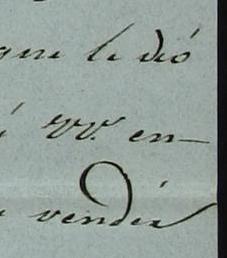 que le dió
á VV. en-
vendia